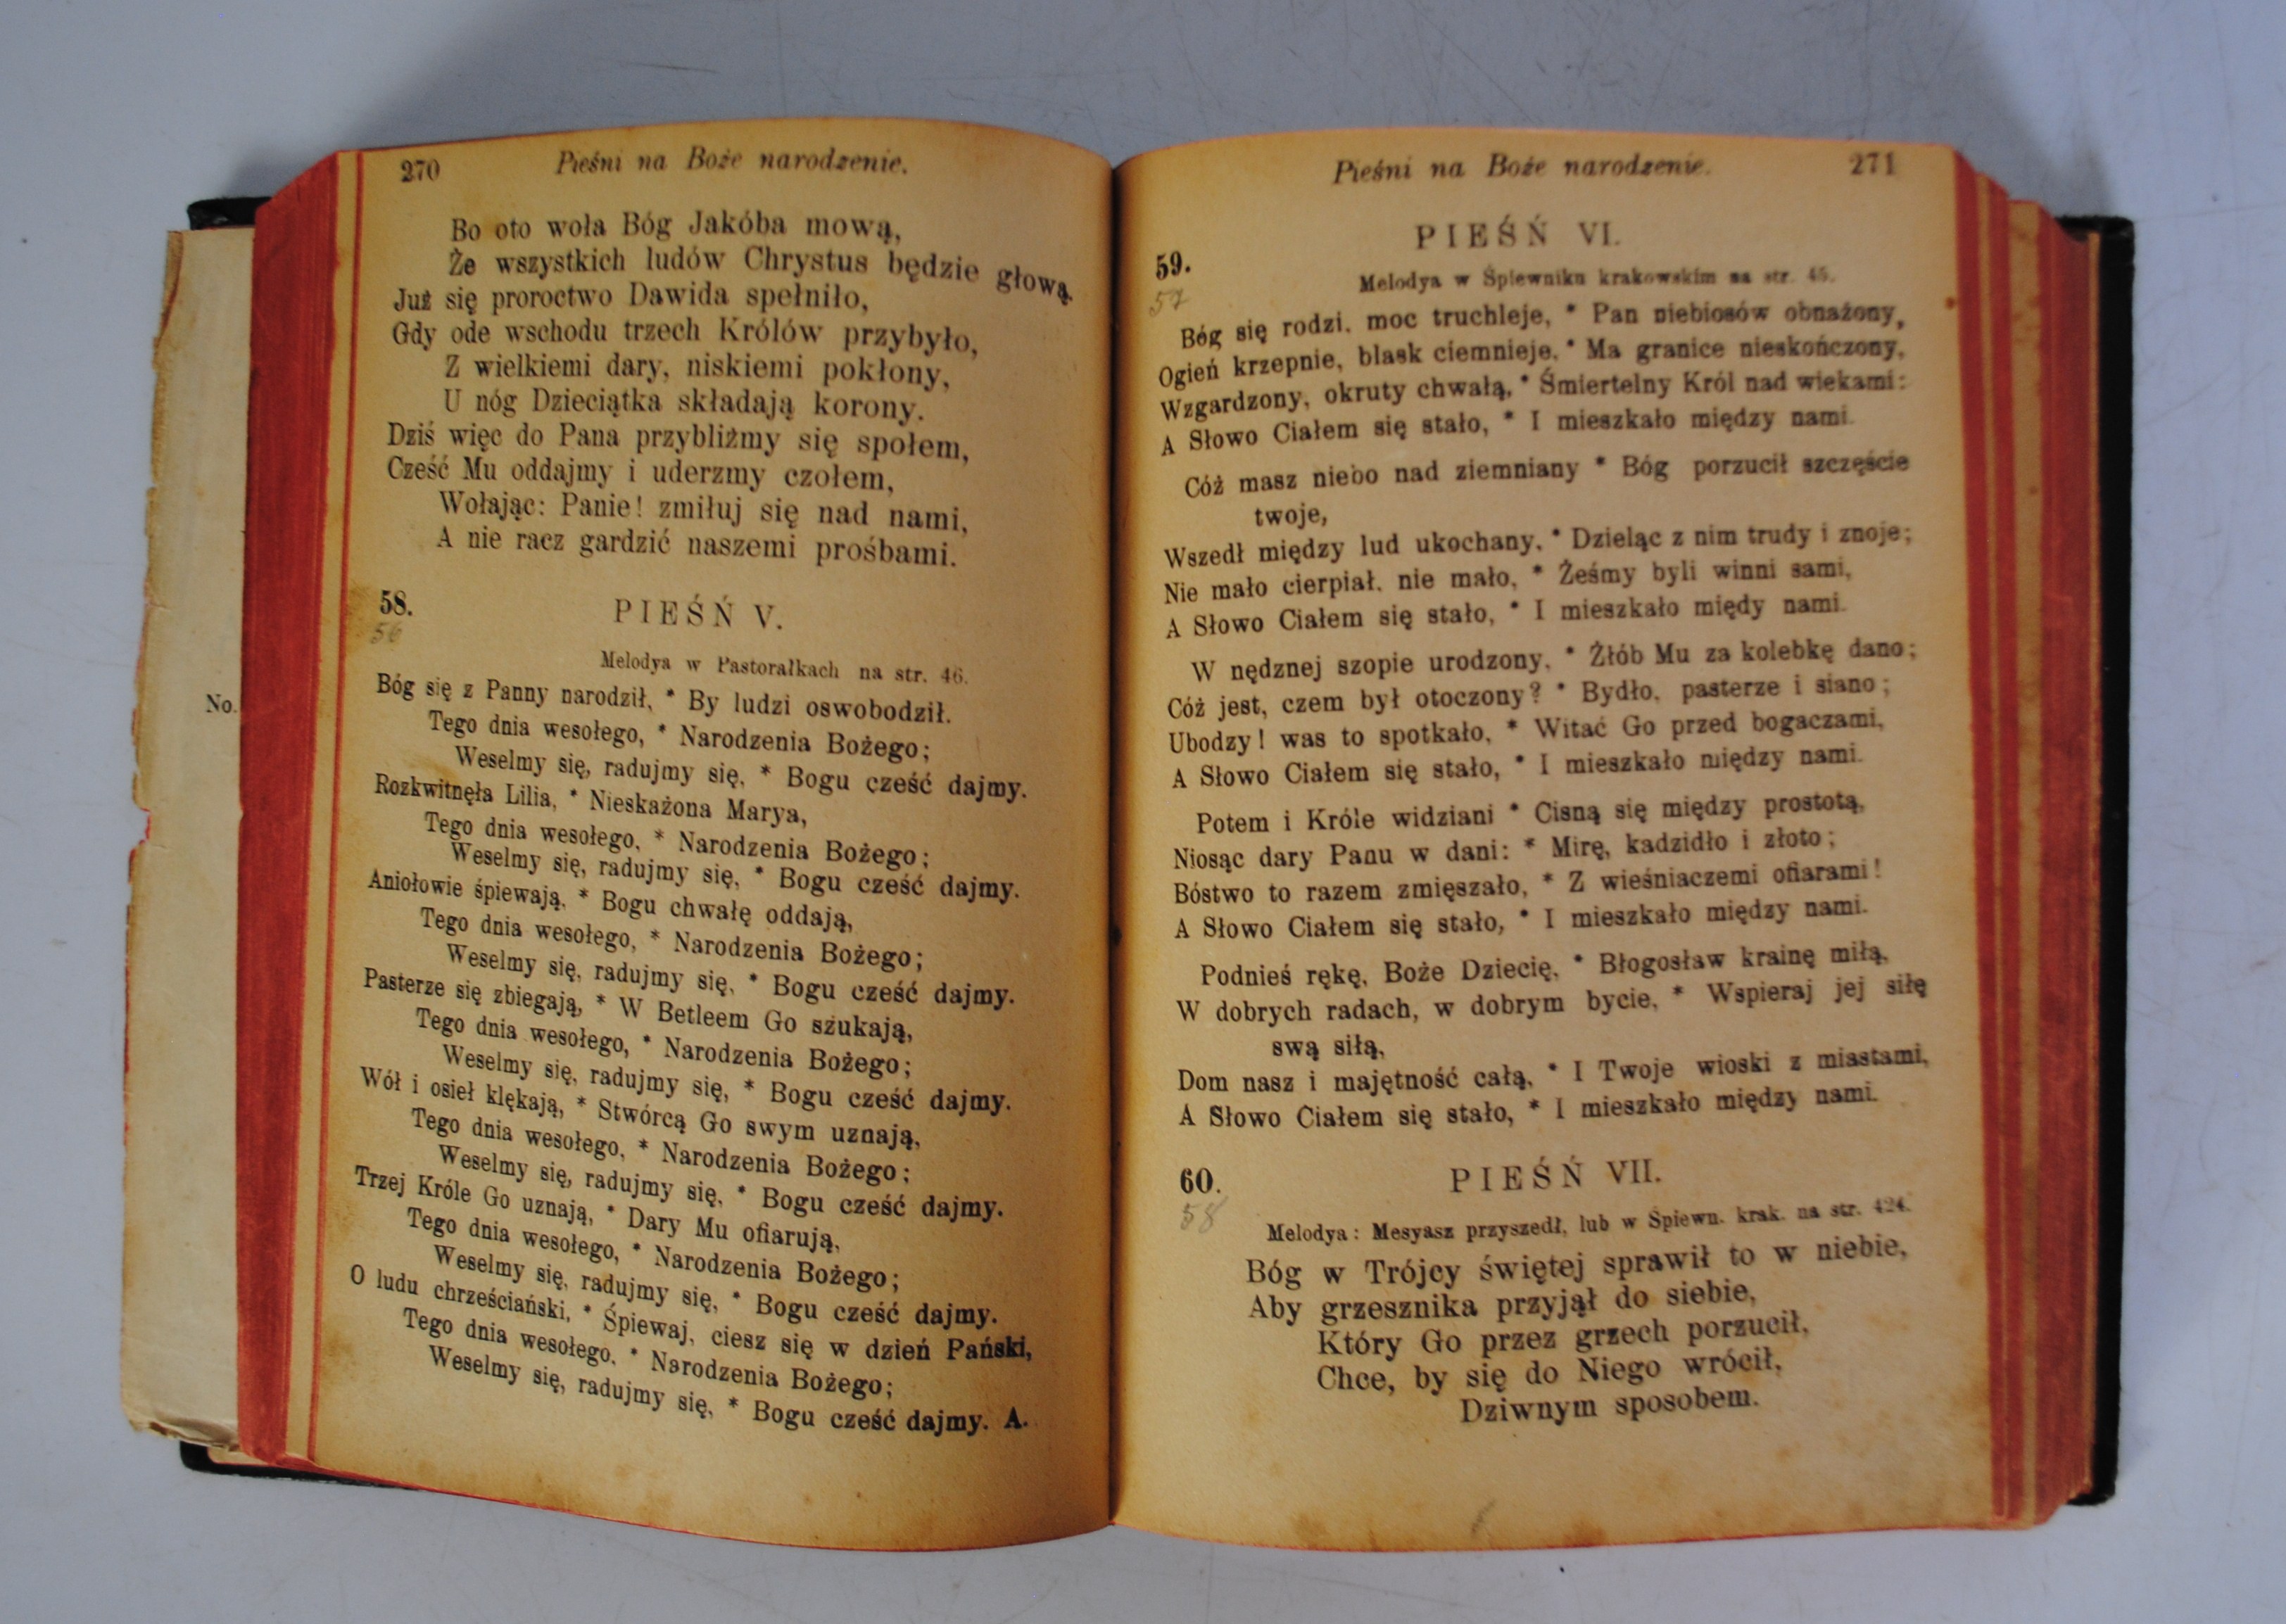 270 Pieśni na Boże narodzenie.
Bo oto woła Bóg Jakóba mową,
Że wszystkich ludów Chrystus będzie głową.
Już się proroctwo Dawida spełniło,
Gdy ode wschodu trzech Królów przybyło,
Z wielkiemi dary, niskiemi pokłony,
U nóg Dzieciątka składają korony.
Dziś więc do Pana przybliżmy się społem,
Cześć Mu oddajmy i uderzmy czołem,
Wołając: Panie! zmiłuj się nad nami,
A nie racz gardzić naszemi prośbami.
58. PIEŚŃ V.
56
Melodya w Pastorałkach na str. 46.
Bóg się z Panny narodził, * By ludzi oswobodził.
Tego dnia wesołego, * Narodzenia Bożego;
Weselmy się, radujmy się, * Bogu cześć dajmy.
Rozkwitnęła Lilia, * Nieskażona Marya,
Tego dnia wesołego, * Narodzenia Bożego;
Weselmy się, radujmy się, * Bogu cześć dajmy.
Aniołowie śpiewają, * Bogu chwałę oddają,
Tego dnia wesołego, * Narodzenia Bożego;
Weselmy się, radujmy się, * Bogu cześć dajmy.
Pasterze się zbiegają, * W Betleem Go szukają,
Tego dnia wesołego, * Narodzenia Bożego;
Weselmy się, radujmy się, * Bogu cześć dajmy.
Wół i osieł klękają, * Stwórcą Go swym uznają,
Tego dnia wesołego, * Narodzenia Bożego;
Weselmy się, radujmy się, * Bogu cześć dajmy.
Trzej Króle Go uznają, * Dary Mu ofiarują,
Tego dnia wesołego, * Narodzenia Bożego;
Weselmy się, radujmy się, * Bogu cześć dajmy.
O ludu chrześciański, * Śpiewaj, ciesz się w dzień Pański,
Tego dnia wesołego, * Narodzenia Bożego;
Weselmy się, radujmy się, * Bogu cześć dajmy. A.
No.
Pieśni na Boże narodzenie. 271
PIEŚŃ VI.
59.
57
Melodya w Śpiewniku krakowskim na str. 45.
Bóg się rodzi, moc truchleje, * Pan niebiosów obnażony,
Ogień krzepnie, blask ciemnieje, * Ma granice nieskończony,
Wzgardzony, okruty chwałą, * Śmiertelny Król nad wiekami:
A Słowo Ciałem się stało, * I mieszkało między nami.
Cóż masz niebo nad ziemniany * Bóg porzucił szczęście
twoje,
Wszedł między lud ukochany, * Dzieląc z nim trudy i znoje;
Nie mało cierpiał, nie mało, * Żeśmy byli winni sami,
A Słowo Ciałem się stało, * I mieszkało międy nami.
W nędznej szopie urodzony, * Żłób Mu za kolebkę dano;
Cóż jest, czem był otoczony? * Bydło, pasterze i siano;
Ubodzy! was to spotkało, * Witać Go przed bogaczami,
A Słowo Ciałem się stało, * I mieszkało między nami.
Potem i Króle widziani * Cisną się między prostotą,
Niosąc dary Panu w dani: * Mirę, kadzidło i złoto;
Bóstwo to razem zmięszało, * Z wieśniaczemi ofiarami!
A Słowo Ciałem się stało, * I mieszkało między nami.
Podnieś rękę, Boże Dziecię, * Błogosław krainę miłą,
W dobrych radach, w dobrym bycie, * Wspieraj jej siłę
swą siłą,
Dom nasz i majętność całą, * I Twoje wioski z miastami,
A Słowo Ciałem się stało, * I mieszkało między nami.
60. PIEŚŃ VII.
58
Melodya: Mesyasz przyszedł, lub w Śpiewn. krak. na str. 424.
Bóg w Trójcy świętej sprawił to w niebie,
Aby grzesznika przyjął do siebie,
Który Go przez grzech porzucił,
Chce, by się do Niego wrócił,
Dziwnym sposobem.